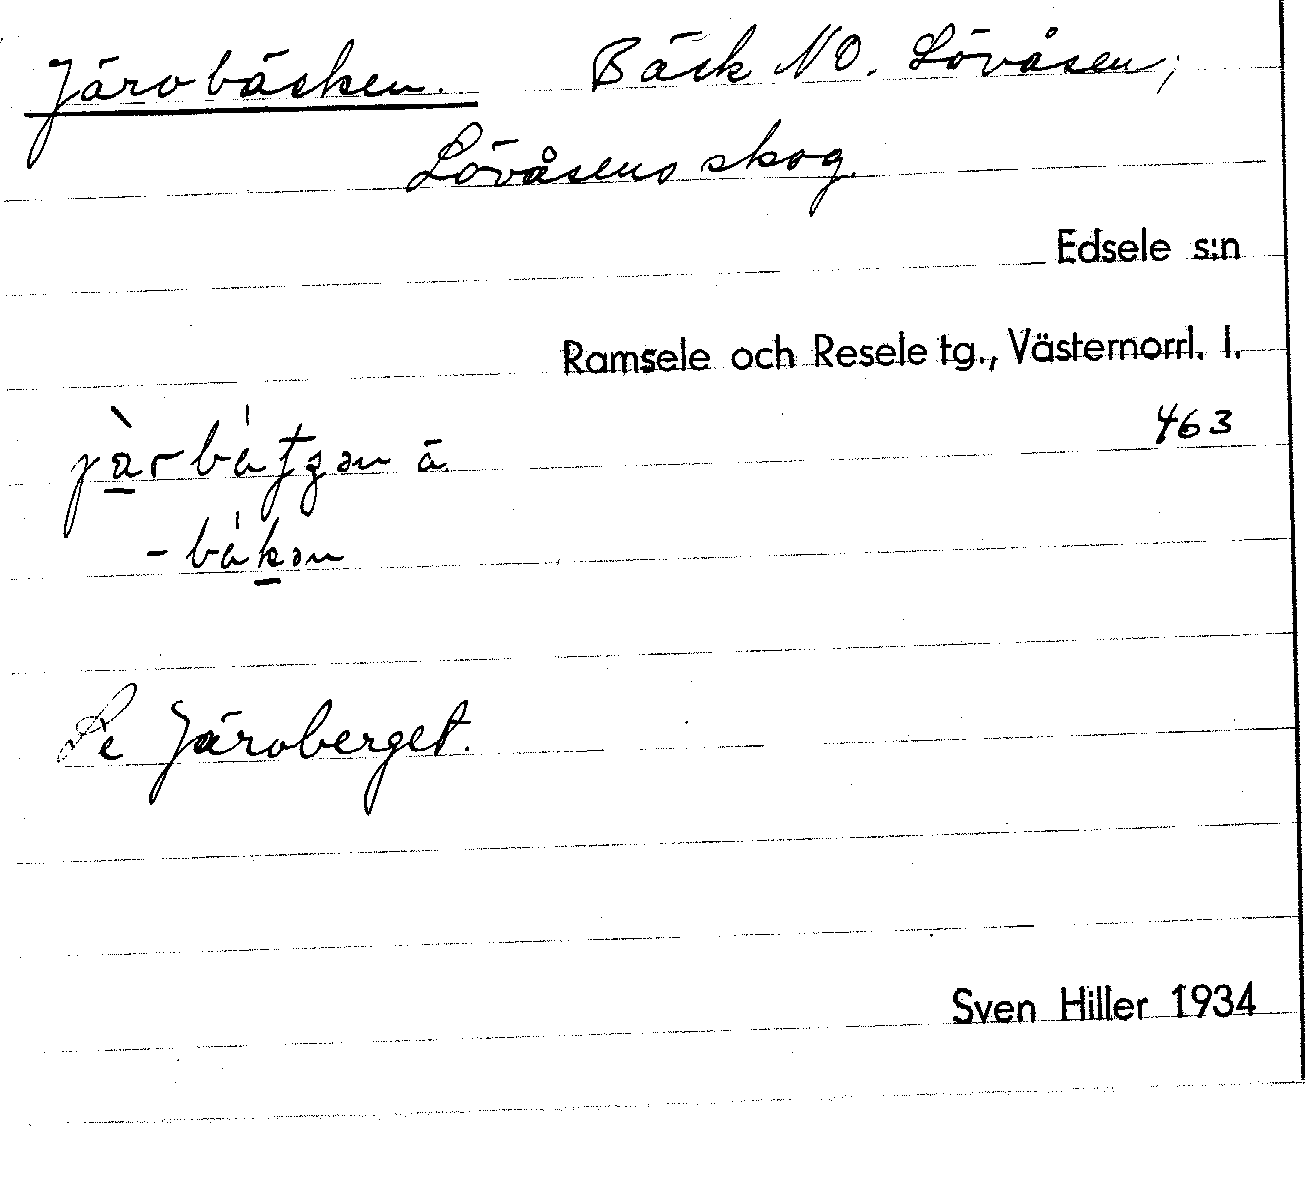 Järvbäcken. Bäck NO. Lövåsen;
Lövåsens skog.
Edsele s:n
Ramsele och Resele tg., Västernorrl. l.
463
Se Järvberget.
Sven Hiller 1934